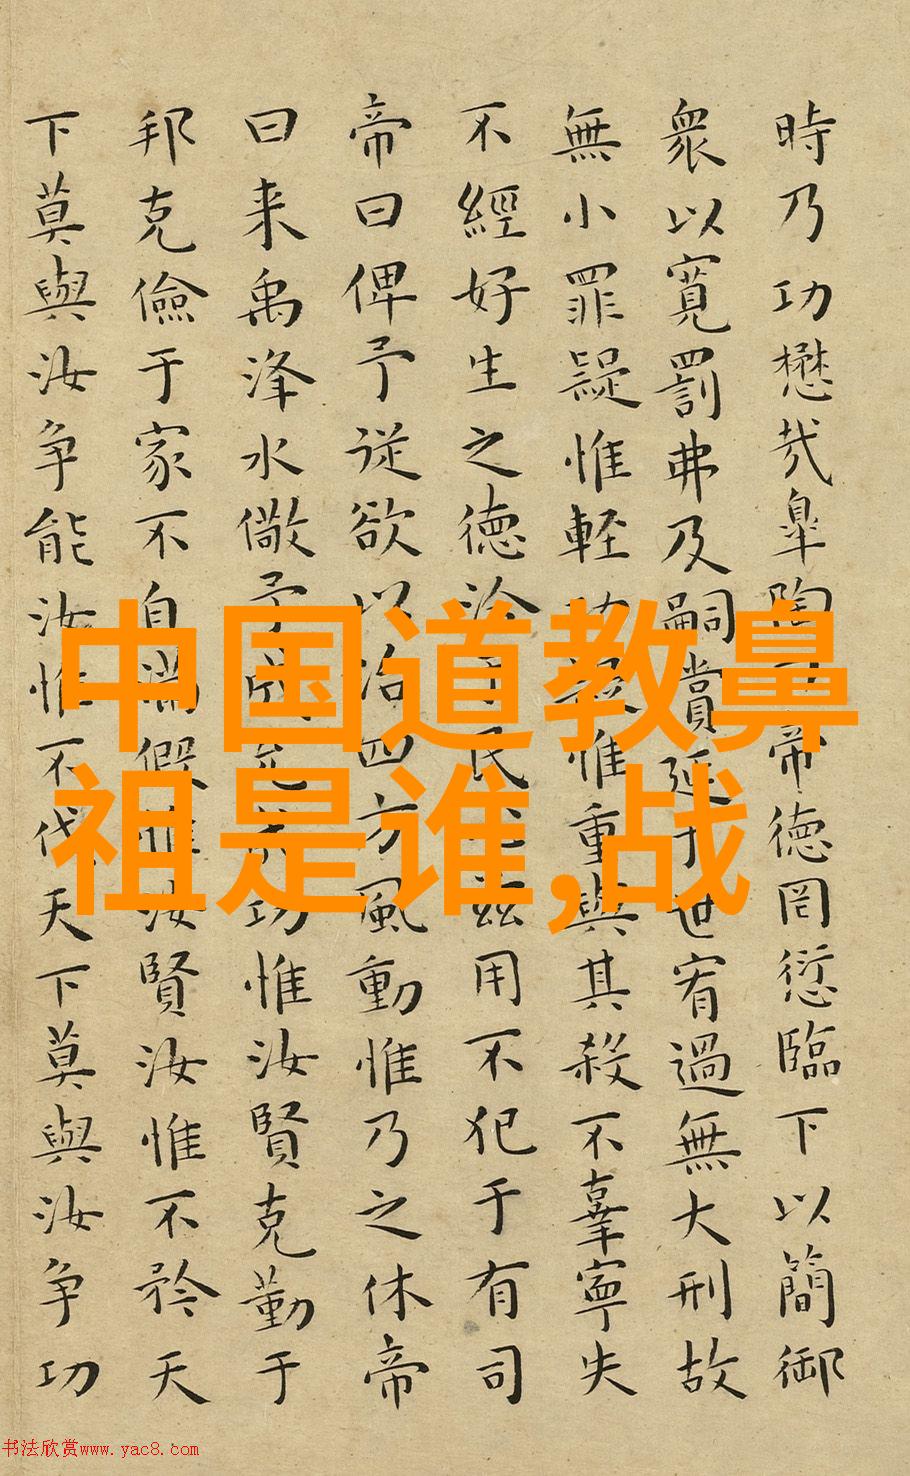 時乃功懋哉皐陶帝徳罔愆臨下以簡御
衆以寬罰弗及嗣賞延于世宥過無大刑故
無小罪疑惟輕惟重與其殺不辜寧失
不經好生之徳洽民兹用不犯于有司
帝曰俾予從欲以治四方風動惟乃之休帝
曰来禹洚水儆予功惟汝賢克勤于
邦克儉于家不自滿假惟汝賢汝惟不矜天
下莫與汝争能汝惟不伐天下莫與汝争功
中国道教鼻
祖是谁,战
书法欣赏www.yac8.com